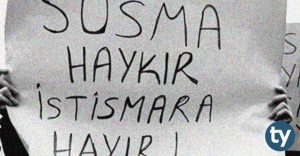 SUSMA
HAYKIR
İSTİSMARA
HAYIR!
ty